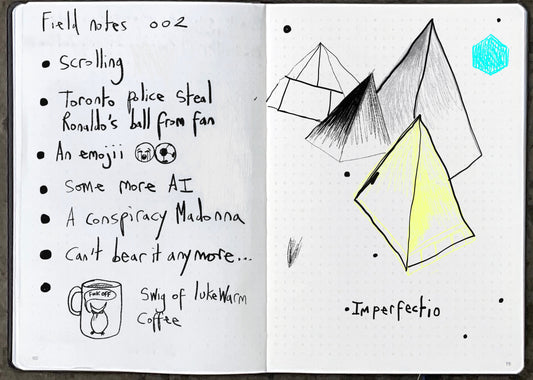 Field notes 002
Scrolling
Toronto police steal
Ronaldo's ball from fan
An emojii
Some more AI
A conspiracy Madonna
Can't bear it anymore...
Fuck OFF
Swig of lukewarm
Coffee
Imperfectio